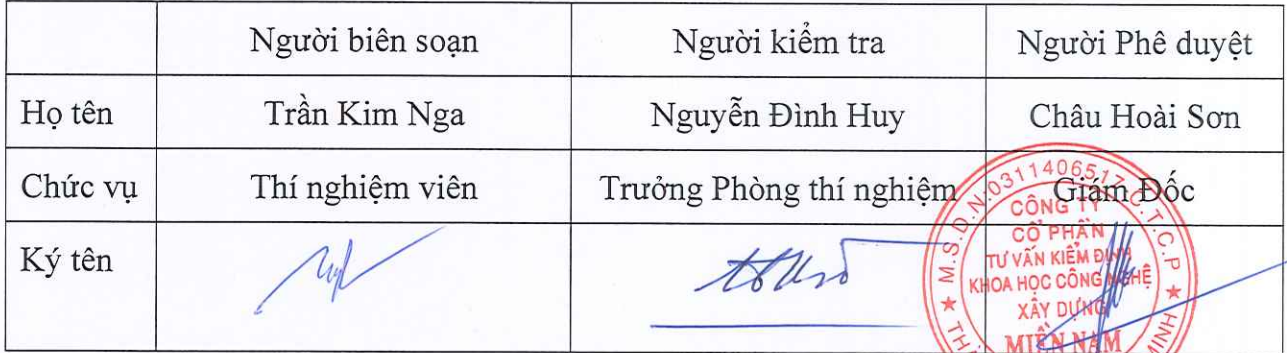 Người biên soạn Người kiểm tra Người Phê duyệt
Họ tên Trần Kim Nga Nguyễn Đình Huy Châu Hoài Sơn
Chức vụ Thí nghiệm viên Trưởng Phòng thí nghiệm Giám Đốc
Ký tên
M.S.D.N:0311406517-C.T.C.P
CÔNG TY
CỔ PHẦN
TƯ VẤN KIỂM ĐỊNH
KHOA HỌC CÔNG NGHỆ
XÂY DỰNG
MIỀN NAM
MINH